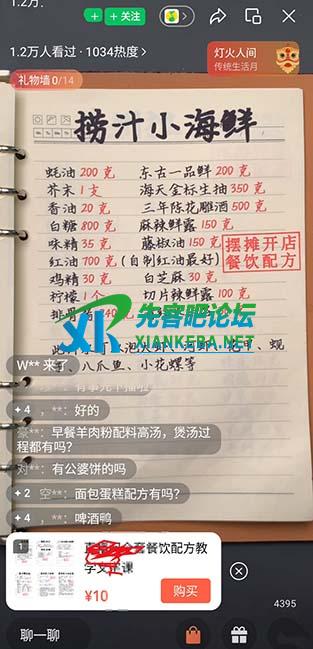 1.2万.
+ 关注
1.2万人看过 · 1034热度 >
灯火人间
传统生活月
礼物墙 0/14
捞汁小海鲜
蚝油 200 克 东古一品鲜 200 克
芥末 1 支 海天金标生抽 350 克
香油 20 克 三年陈花雕酒 500 克
白糖 800 克 麻辣鲜露 150 克
味精 35 克 藤椒油 150 克
红油 700 克 (自制红油最好)
鸡精 30 克 白芝麻 30 克
柠檬 1 个 切片辣鲜露 100 克
摆摊开店
餐饮配方
先客吧论坛
XIANKEBA.NET
W** 来了
、八爪鱼、小花螺等
+ 4 **: 好的
豪**: 早餐羊肉粉配料高汤,煲汤过
程都有吗?
对**: 有公婆饼的吗
+ 2 空**: 面包蛋糕配方有吗?
+ 4 **: 啤酒鸭
1
餐饮配方教
¥10
购买
4395
聊一聊